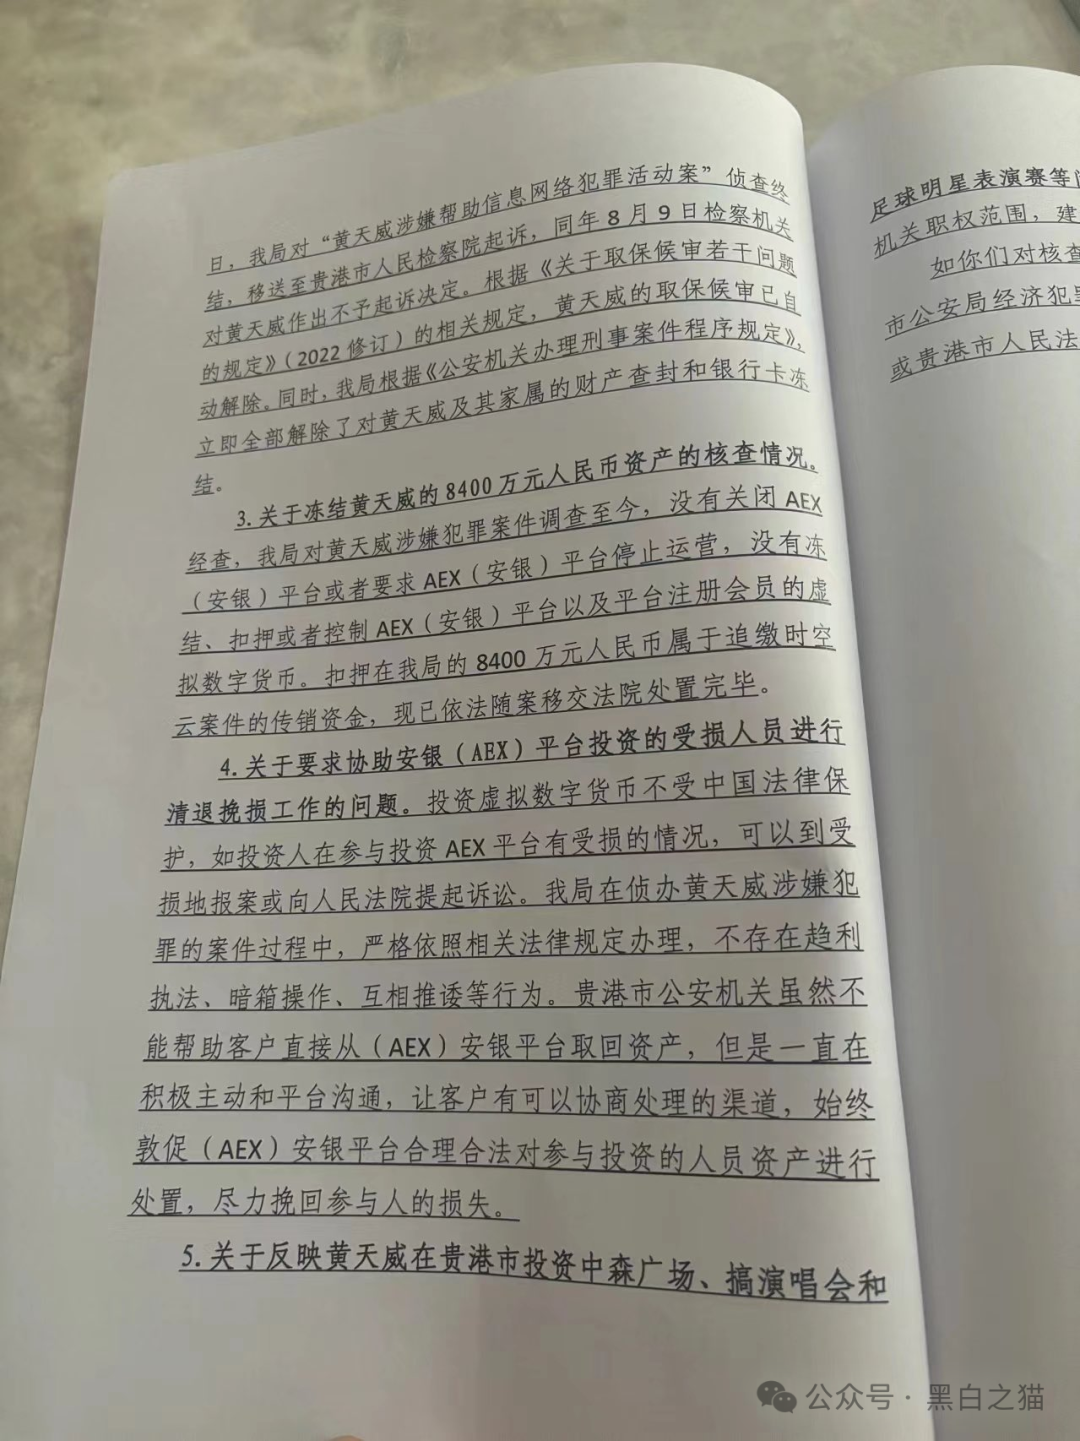 日，我局对“黄天威涉嫌帮助信息网络犯罪活动案”侦查终
结，移送至贵港市人民检察院起诉，同年8月9日检察机关
对黄天威作出不予起诉决定。根据《关于取保候审若干问题
的规定》（2022修订）的相关规定，黄天威的取保候审已自
动解除。同时，我局根据《公安机关办理刑事案件程序规定》，
立即全部解除了对黄天威及其家属的财产查封和银行卡冻
结。
3.关于冻结黄天威的8400万元人民币资产的核查情况。
经查，我局对黄天威涉嫌犯罪案件调查至今，没有关闭AEX
（安银）平台或者要求AEX（安银）平台停止运营，没有冻
结、扣押或者控制AEX（安银）平台以及平台注册会员的虚
拟数字货币。扣押在我局的8400万元人民币属于追缴时空
云案件的传销资金，现已依法随案移交法院处置完毕。
4.关于要求协助安银（AEX）平台投资的受损人员进行
清退挽损工作的问题。投资虚拟数字货币不受中国法律保
护，如投资人在参与投资AEX平台有受损的情况，可以到受
损地报案或向人民法院提起诉讼。我局在侦办黄天威涉嫌犯
罪的案件过程中，严格依照相关法律规定办理，不存在趋利
执法、暗箱操作、互相推诿等行为。贵港市公安机关虽然不
能帮助客户直接从（AEX）安银平台取回资产，但是一直在
积极主动和平台沟通，让客户有可以协商处理的渠道，始终
敦促（AEX）安银平台合理合法对参与投资的人员资产进行
处置，尽力挽回参与人的损失。
5.关于反映黄天威在贵港市投资中森广场、搞演唱会和
足球明星表演赛等
机关职权范围，建
如你们对核查
市公安局经济犯
或贵港市人民法
公众号·黑白之猫